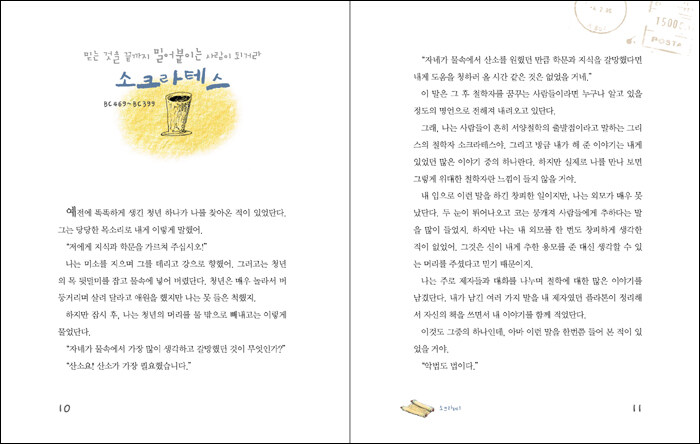 믿는 것을 끝까지 밀어붙이는 사람이 되거라
소크라테스
BC469~BC399
예전에 똑똑하게 생긴 청년 하나가 나를 찾아온 적이 있었단다.
그는 당당한 목소리로 내게 이렇게 말했어.
“저에게 지식과 학문을 가르쳐 주십시오!”
나는 미소를 지으며 그를 데리고 강으로 향했어. 그러고는 청년
의 목 뒷덜미를 잡고 물속에 넣어 버렸단다. 청년은 매우 놀라서 버
둥거리며 살려 달라고 애원을 했지만 나는 못 들은 척했지.
하지만 잠시 후, 나는 청년의 머리를 물 밖으로 빼내고는 이렇게
물었단다.
“자네가 물속에서 가장 많이 생각하고 갈망했던 것이 무엇인가?”
“산소요! 산소가 가장 필요했습니다.”
10
“자네가 물속에서 산소를 원했던 만큼 학문과 지식을 갈망했다면
내게 도움을 청하러 올 시간 같은 것은 없었을 거네.”
이 말은 그 후 철학자를 꿈꾸는 사람들이라면 누구나 알고 있을
정도의 명언으로 전해져 내려오고 있단다.
그래, 나는 사람들이 흔히 서양철학의 출발점이라고 말하는 그리
스의 철학자 소크라테스야. 그리고 방금 내가 해 준 이야기는 내게
있었던 많은 이야기 중의 하나란다. 하지만 실제로 나를 만나 보면
그렇게 위대한 철학자란 느낌이 들지 않을 거야.
내 입으로 이런 말을 하긴 창피한 일이지만, 나는 외모가 매우 못
났단다. 두 눈이 튀어나오고 코는 뭉개져 사람들에게 추하다는 말
을 많이 들었지. 하지만 나는 내 외모를 한 번도 창피하게 생각한
적이 없었어. 그것은 신이 내게 추한 용모를 준 대신 생각할 수 있
는 머리를 주셨다고 믿기 때문이지.
나는 주로 제자들과 대화를 나누며 철학에 대한 많은 이야기를
남겼단다. 내가 남긴 여러 가지 말을 내 제자였던 플라톤이 정리해
서 자신의 책을 쓰면서 내 이야기를 함께 적었단다.
이것도 그중의 하나인데, 아마 이런 말을 한번쯤 들어 본 적이 있
었을 거야.
“악법도 법이다.”
소크라테스
11
1500
POSTA